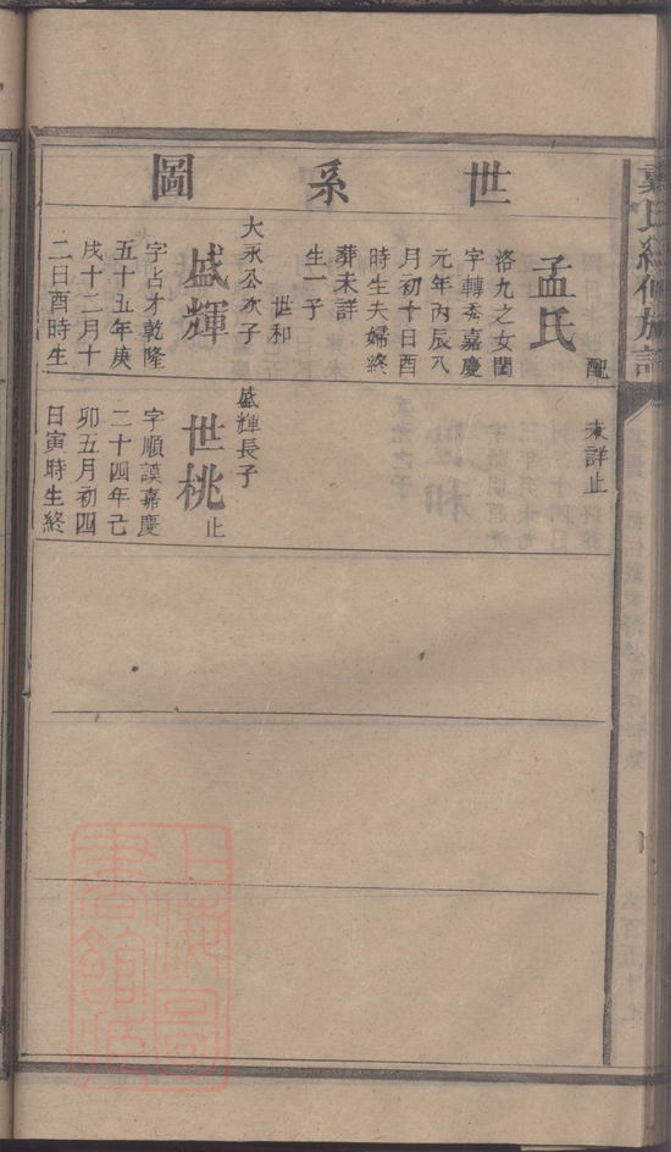 世系圖
配
孟氏
洛九之女閨
字轉秀嘉慶
元年丙辰八
月初十日酉
時生夫婦終
葬未詳
生一子
世和
大永公次子
盛輝
字占才乾隆
五十五年庚
戌十二月十
二日酉時生
未詳止
盛輝長子
世桃
止
字順謨嘉慶
二十四年己
卯五月初四
日寅時生終
上海圖
書館藏